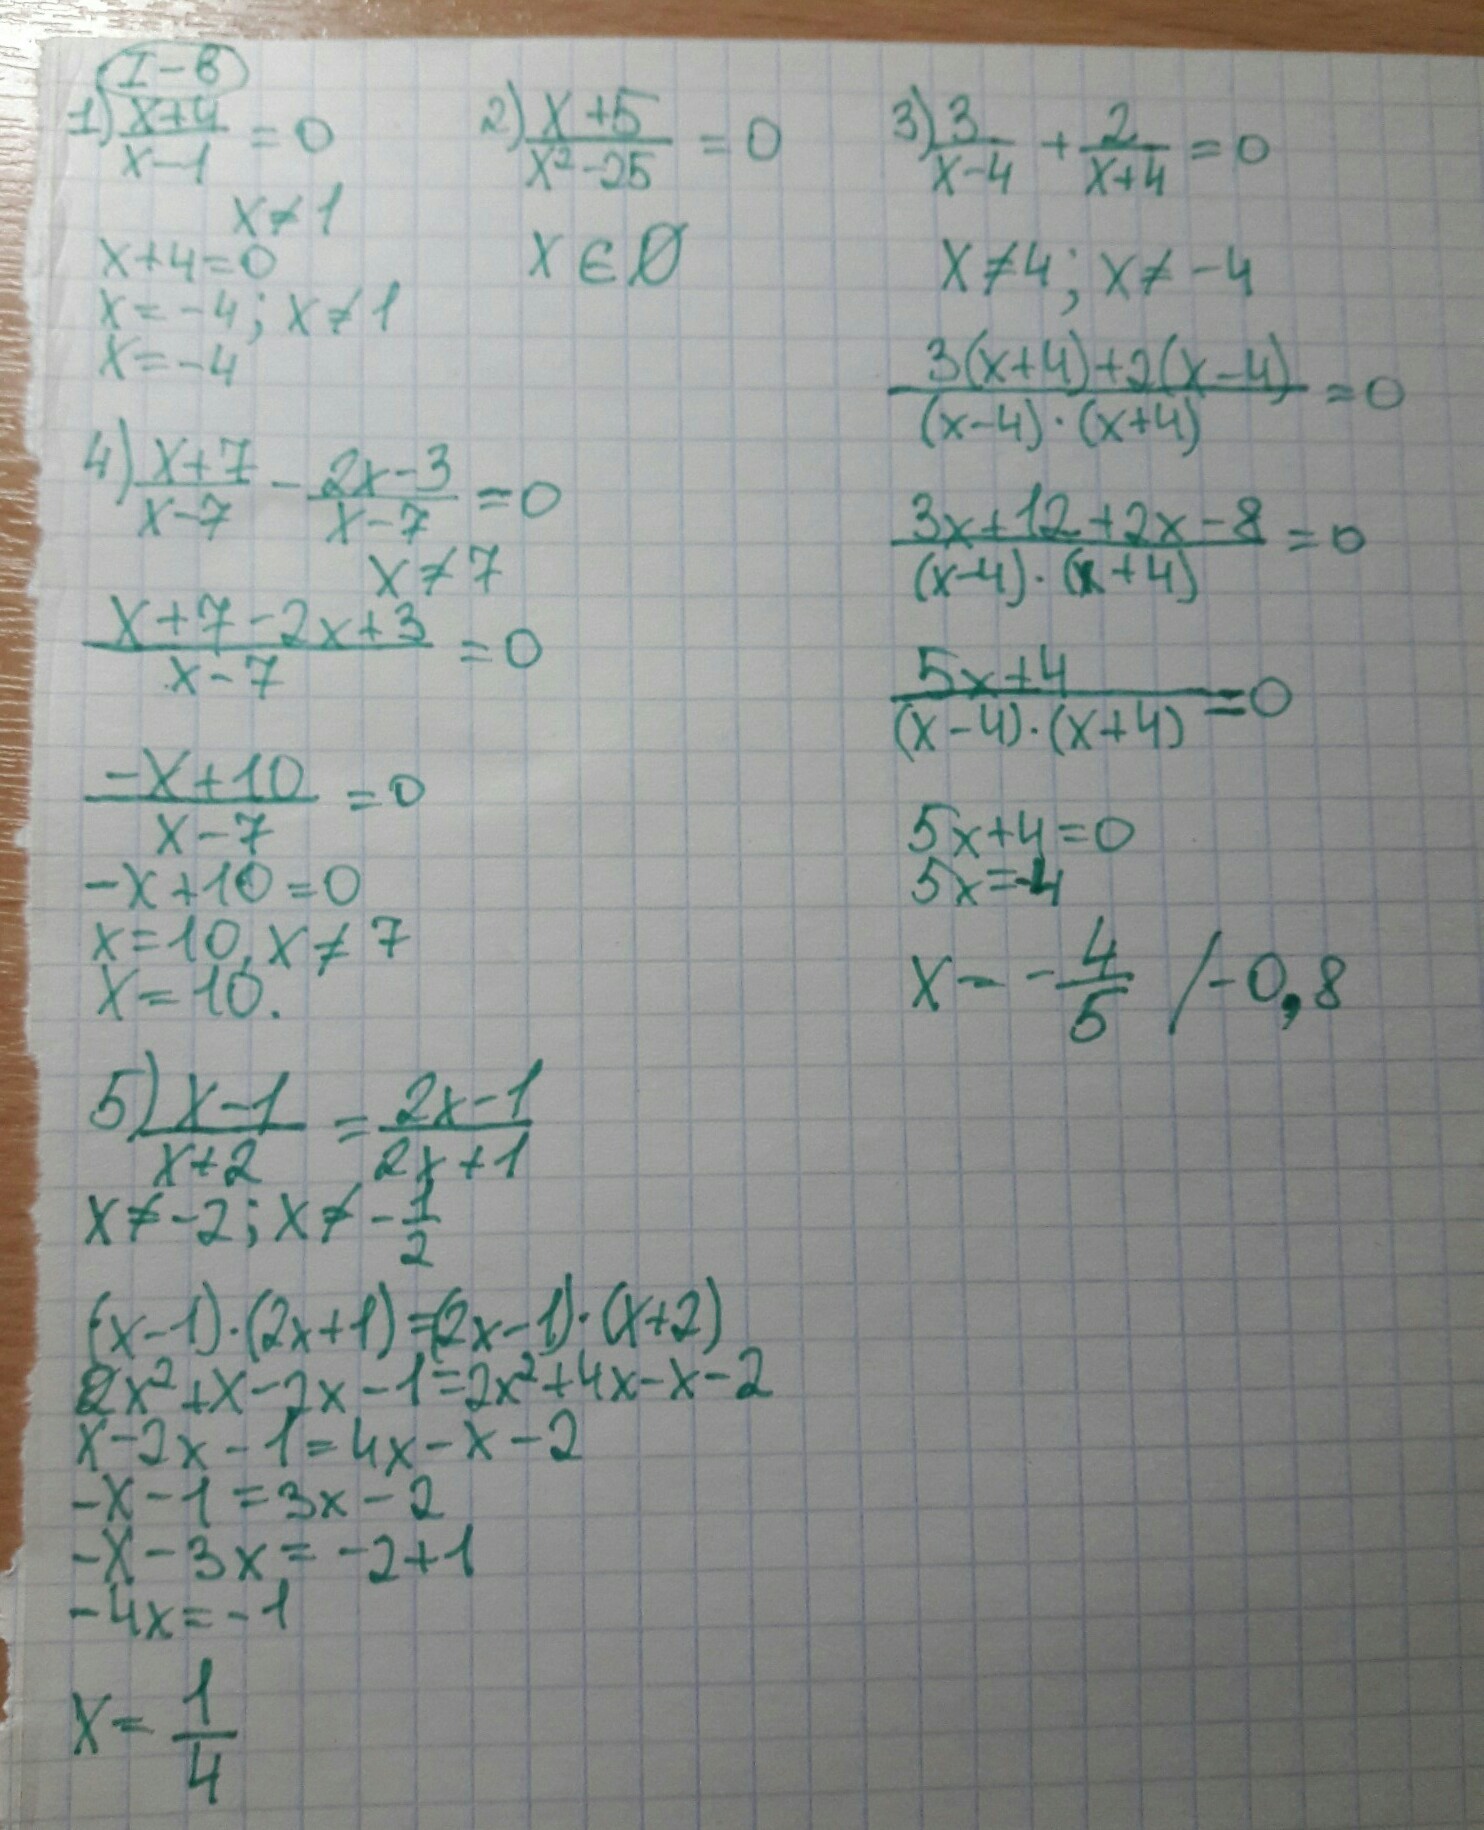 I-В
1) (x+4)/(x-1) = 0
x≠1
x+4=0
x=-4; x≠1
x=-4
2) (x+5)/(x²-25) = 0
x∈∅
3) 3/(x-4) + 2/(x+4) = 0
x≠4; x≠-4
(3(x+4)+2(x-4))/((x-4)·(x+4)) = 0
(3x+12+2x-8)/((x-4)·(x+4)) = 0
(5x+4)/((x-4)·(x+4)) = 0
5x+4=0
5x=-4
x=-4/5 /-0,8
4) (x+7)/(x-7) - (2x-3)/(x-7) = 0
x≠7
(x+7-2x+3)/(x-7) = 0
(-x+10)/(x-7) = 0
-x+10=0
x=10, x≠7
x=10.
5) (x-1)/(x+2) = (2x-1)/(2x+1)
x≠-2; x≠-1/2
(x-1)·(2x+1)=(2x-1)·(x+2)
2x²+x-2x-1=2x²+4x-x-2
x-2x-1=4x-x-2
-x-1=3x-2
-x-3x=-2+1
-4x=-1
x=1/4